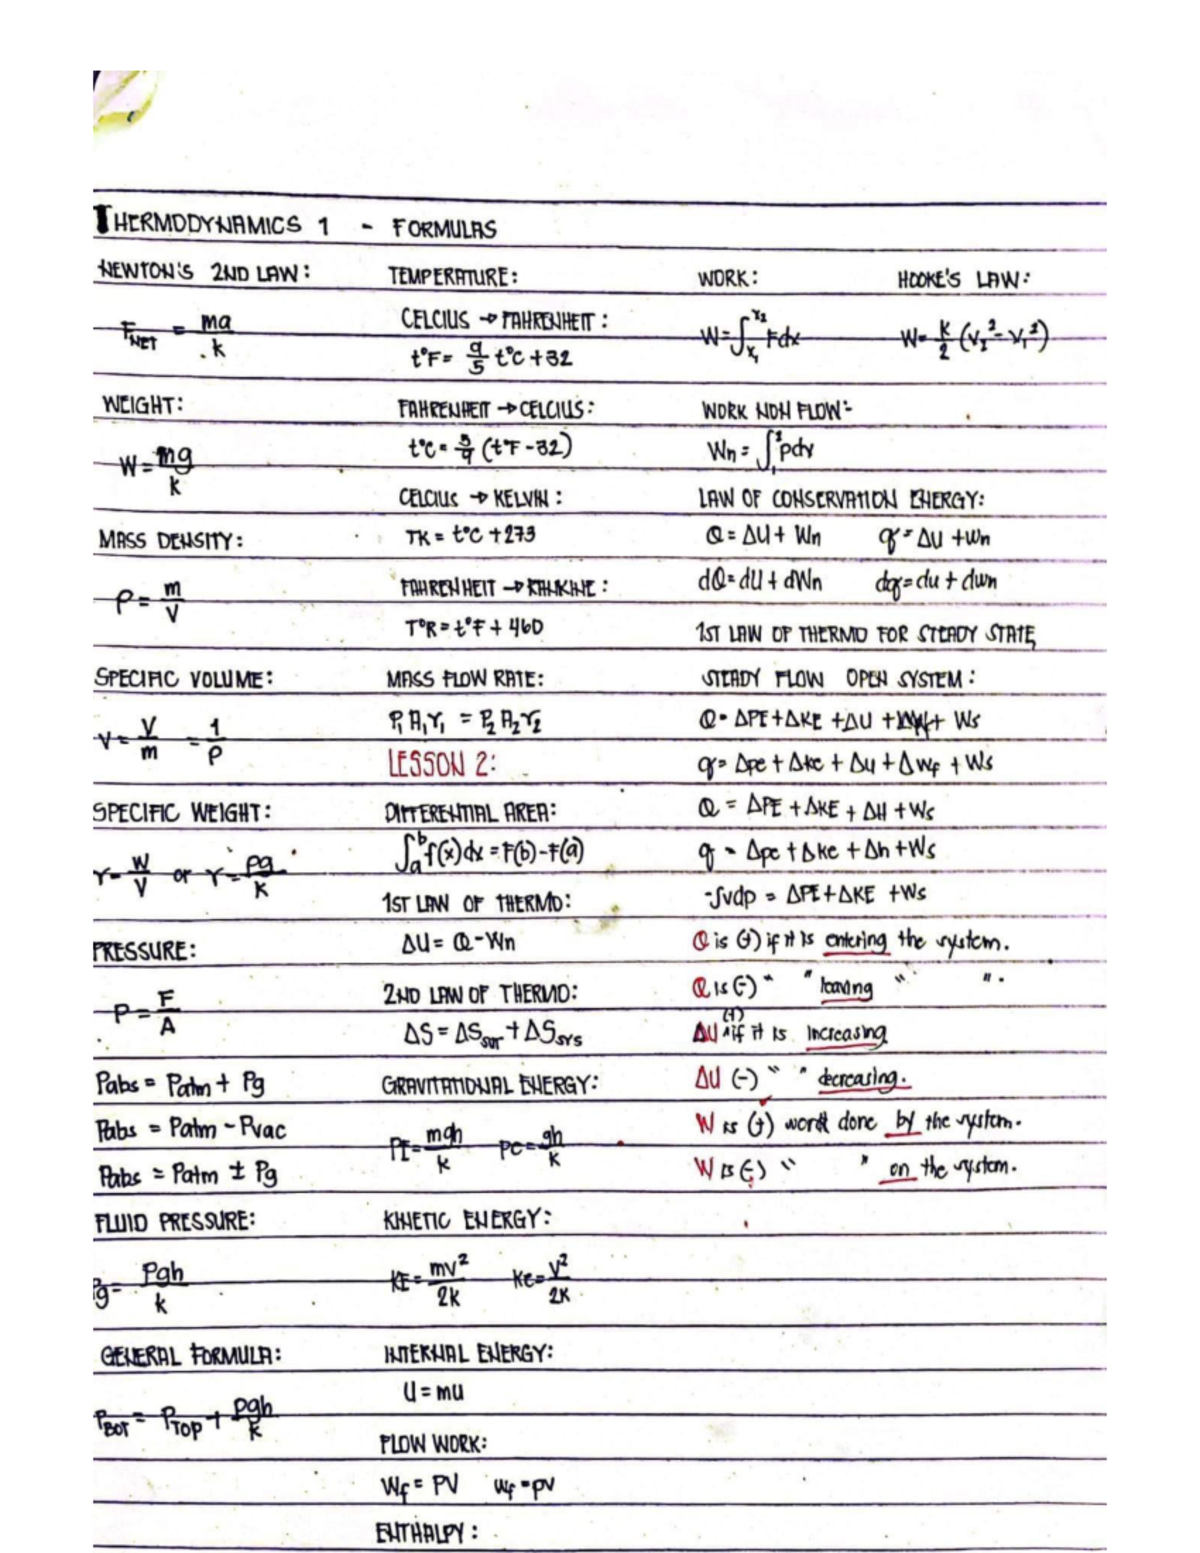 THERMODYNAMICS 1 - FORMULAS
NEWTON'S 2ND LAW:
F_NET = ma/k
WEIGHT:
W = mg/k
MASS DENSITY:
ρ = m/V
SPECIFIC VOLUME:
v = V/m = 1/ρ
SPECIFIC WEIGHT:
γ = W/V or γ = ρg/k
PRESSURE:
P = F/A
Pabs = Patm + Pg
Pabs = Patm - Pvac
Pabs = Patm ± Pg
FLUID PRESSURE:
Pg = ρgh/k
GENERAL FORMULA:
P_BOT = P_TOP + ρgh/k
TEMPERATURE:
CELCIUS → FAHRENHEIT:
t°F = 9/5 t°C + 32
FAHRENHEIT → CELCIUS:
t°C = 5/9 (t°F - 32)
CELCIUS → KELVIN:
TK = t°C + 273
FAHRENHEIT →
T°R = t°F + 460
MASS FLOW RATE:
P₁ A₁ γ₁ = P₂ A₂ γ₂
LESSON 2:
DIFFERENTIAL AREA:
∫ₐᵇ f(x)dx = F(b) - F(a)
1ST LAW OF THERMO:
ΔU = Q - Wn
2ND LAW OF THERMO:
ΔS = ΔS_sur + ΔS_sys
GRAVITATIONAL ENERGY:
PE = mgh/k pe = gh/k
KINETIC ENERGY:
KE = mv²/2k ke = v²/2k
INTERNAL ENERGY:
U = mu
FLOW WORK:
Wf = PV wf = pv
ENTHALPY:
WORK:
W = ∫x₁^x₂ Fdx
HOOKE'S LAW:
W = k/2 (v₂² - v₁²)
WORK NON FLOW:
Wn = ∫₁² pdv
LAW OF CONSERVATION ENERGY:
Q = ΔU + Wn q = Δu + wn
dQ = dU + dWn dq = du + dwn
1ST LAW OF THERMO FOR STEADY STATE,
STEADY FLOW OPEN SYSTEM:
Q = ΔPE + ΔKE + ΔU + ΔWf + Ws
q = Δpe + Δke + Δu + Δwf + Ws
Q = ΔPE + ΔKE + ΔH + Ws
q = Δpe + Δke + Δh + Ws
-∫vdp = ΔPE + ΔKE + Ws
Q is (+) if it is entering the system.
Q is (-) " " leaving " " .
ΔU (+) if it is increasing
ΔU (-) " " decreasing.
W is (+) work done by the system.
W is (-) " " on the system.